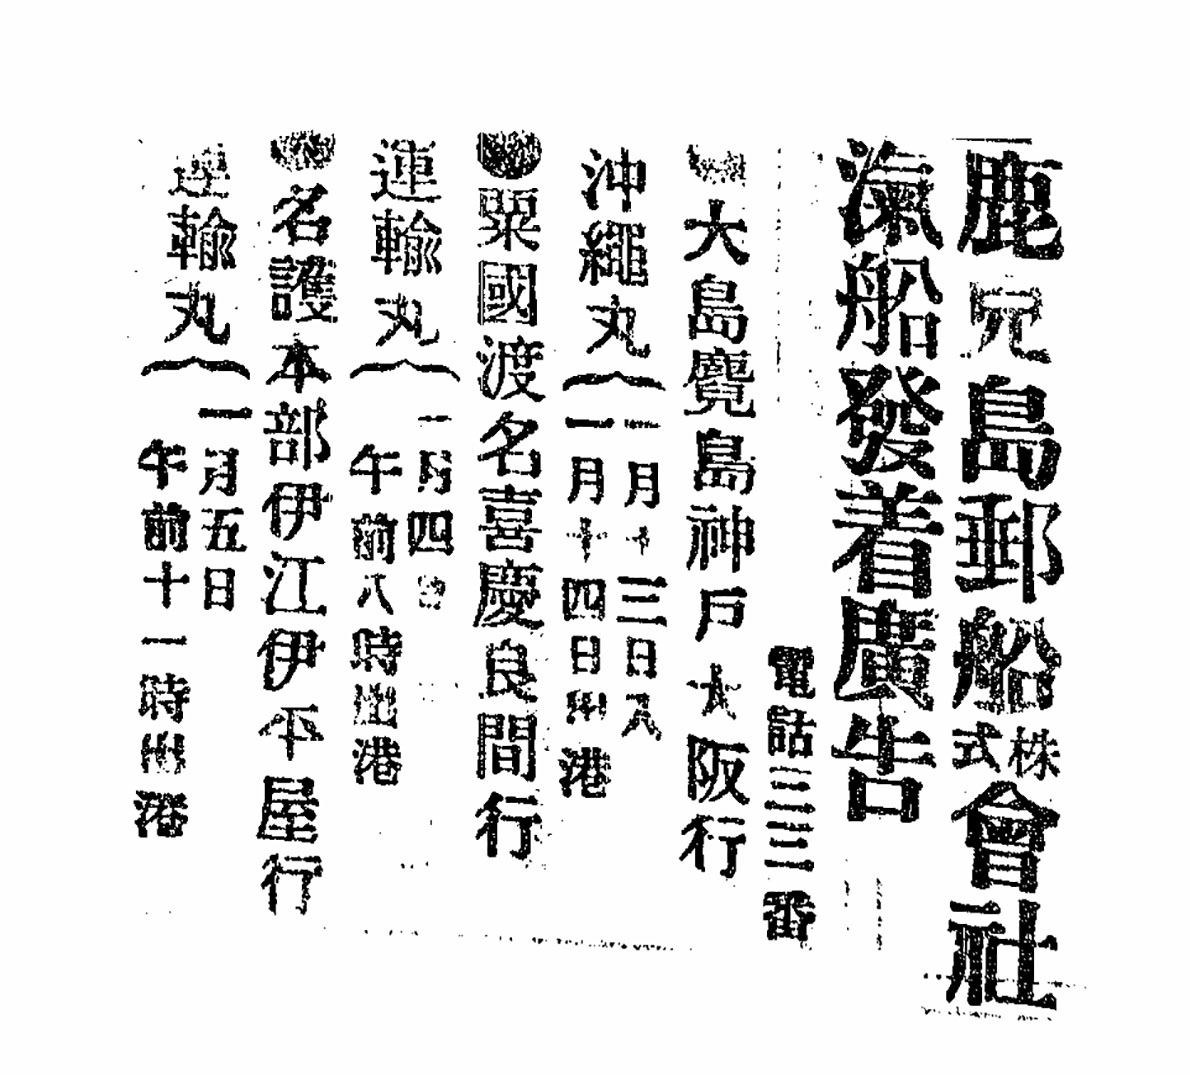 鹿児島郵船株式會社
滊船發着廣告
電話三三番
●大島鹿児島神戸大阪行
沖繩丸
一月十三日入
一月十四日出港
●粟國渡名喜慶良間行
運輸丸
一月四日
午前八時出港
●名護本部伊江伊平屋行
運輸丸
一月五日
午前十一時出港